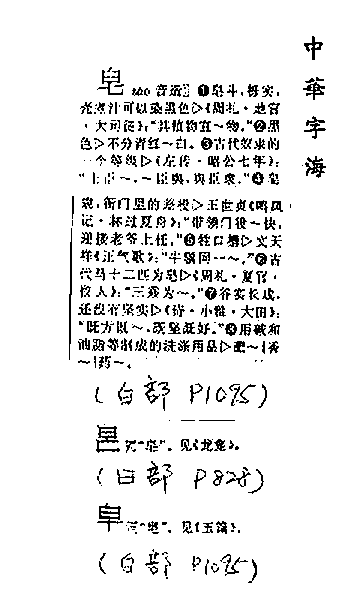 中華字海
皂 zào 音造 ❶皂斗,栎实,
壳煮汁可以染黑色▷《周礼·地官
·大司徒》:“其植物宜~物。”❷黑
色▷不分青红~白。❸古代奴隶的
一个等级▷《左传·昭公七年》:
“士臣~,~臣舆,舆臣隶。”❹皂
隶,衙门里的差役▷王世贞《鸣凤
记·林过夏舟》:“带领门役一快,
迎接老爷上任。”❺牲口槽▷文天
祥《正气歌》:“牛骥同一~。”❻古
代马十二匹为皂▷《周礼·夏官·
校人》:“三乘为~。”❼谷实长成,
还没有坚实▷《诗·小雅·大田》:
“既方既~,既坚既好。”❽用碱和
油脂等制成的洗涤用品▷肥~|香
~|药~。
(白部 P1095)
同“皂”。见《龙龛》。
(日部 P828)
同“皂”。见《玉篇》。
(白部 P1095)